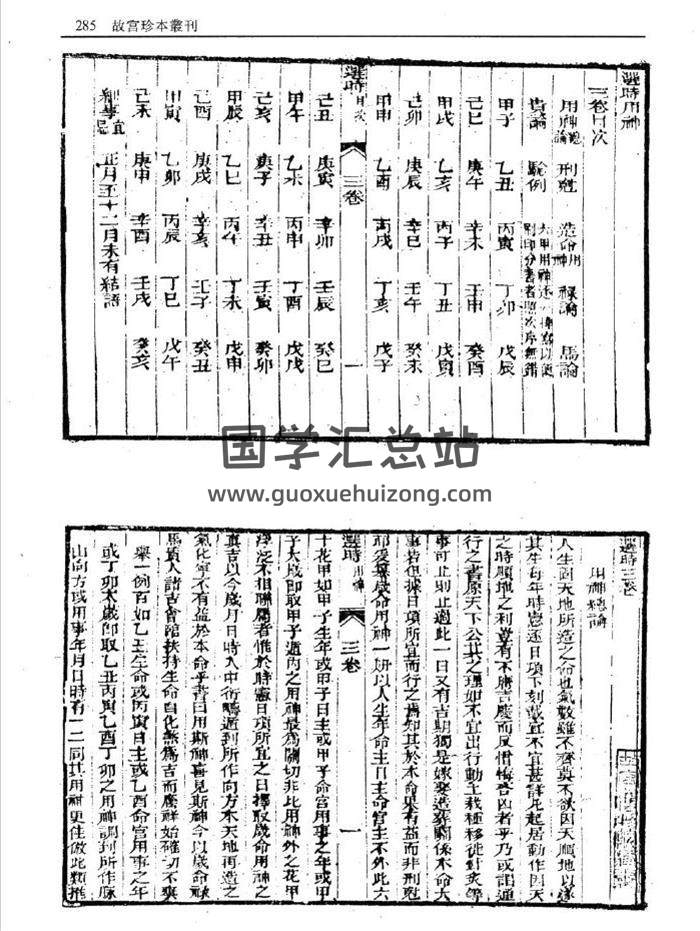 285 故宫珍本叢刊
選時用神
三卷目次
用神總論 刑剋 造命用神 祿論 馬論
貴論 騐例
甲子 乙丑 丙寅 丁卯 戊辰
己巳 庚午 辛未 壬申 癸酉
甲戌 乙亥 丙子 丁丑 戊寅
己卯 庚辰 辛巳 壬午 癸未
甲申 乙酉 丙戌 丁亥 戊子
選時 目次 三卷 一
己丑 庚寅 辛卯 壬辰 癸巳
甲午 乙未 丙申 丁酉 戊戌
己亥 庚子 辛丑 壬寅 癸卯
甲辰 乙巳 丙午 丁未 戊申
己酉 庚戌 辛亥 壬子 癸丑
甲寅 乙卯 丙辰 丁巳 戊午
己未 庚申 辛酉 壬戌 癸亥
制事宜忌 正月至十二月末有結語
国学汇总站
www.guoxuehuizong.com
選時三卷
用神總論
人生因天地所造之命也氣數雖不齊莫不欲因天順地以遂
其生每年時憲逐日項下刻載宜不宜甚詳凡起居動作因天
之時順地之利豈有不膺吉慶而反惜悔吝凶者乎乃或謂通
行之書原天下公共之理如不宜出行動土栽種移徙針灸等
事可止則止過此一日又有吉期獨是嫁娶造葬關係本命大
事若但據日項所宜而行之焉知其於本命果有益而非刑剋
耶爰集歲命用神一册以人生年命主日主命宮主不外此六
選時 用神 三卷 一
十花甲如甲子生年或甲子日主或甲子命宮用事之年或甲
子太歲即取甲子遁內之用神最為關切非比用神外之花甲
浮泛不相聯屬者惟於時憲日項所宜之日擇取歲命用神之
真吉以今歲月日時入中衍疇遁到所作向方本天地再造之
氣化寧不有益於本命乎書曰用斯神喜見斯神今以歲命祿
馬貴人諸吉會館扶持生命自化煞為吉而慶祥始確切不爽
舉一例百如乙丑生命或丙寅日主或乙酉命宮用事之年
或丁卯太歲即取乙丑丙寅乙酉丁卯之用神調到所作脉
山向方或用事年月日時有一二同其用神更佳倣此類推